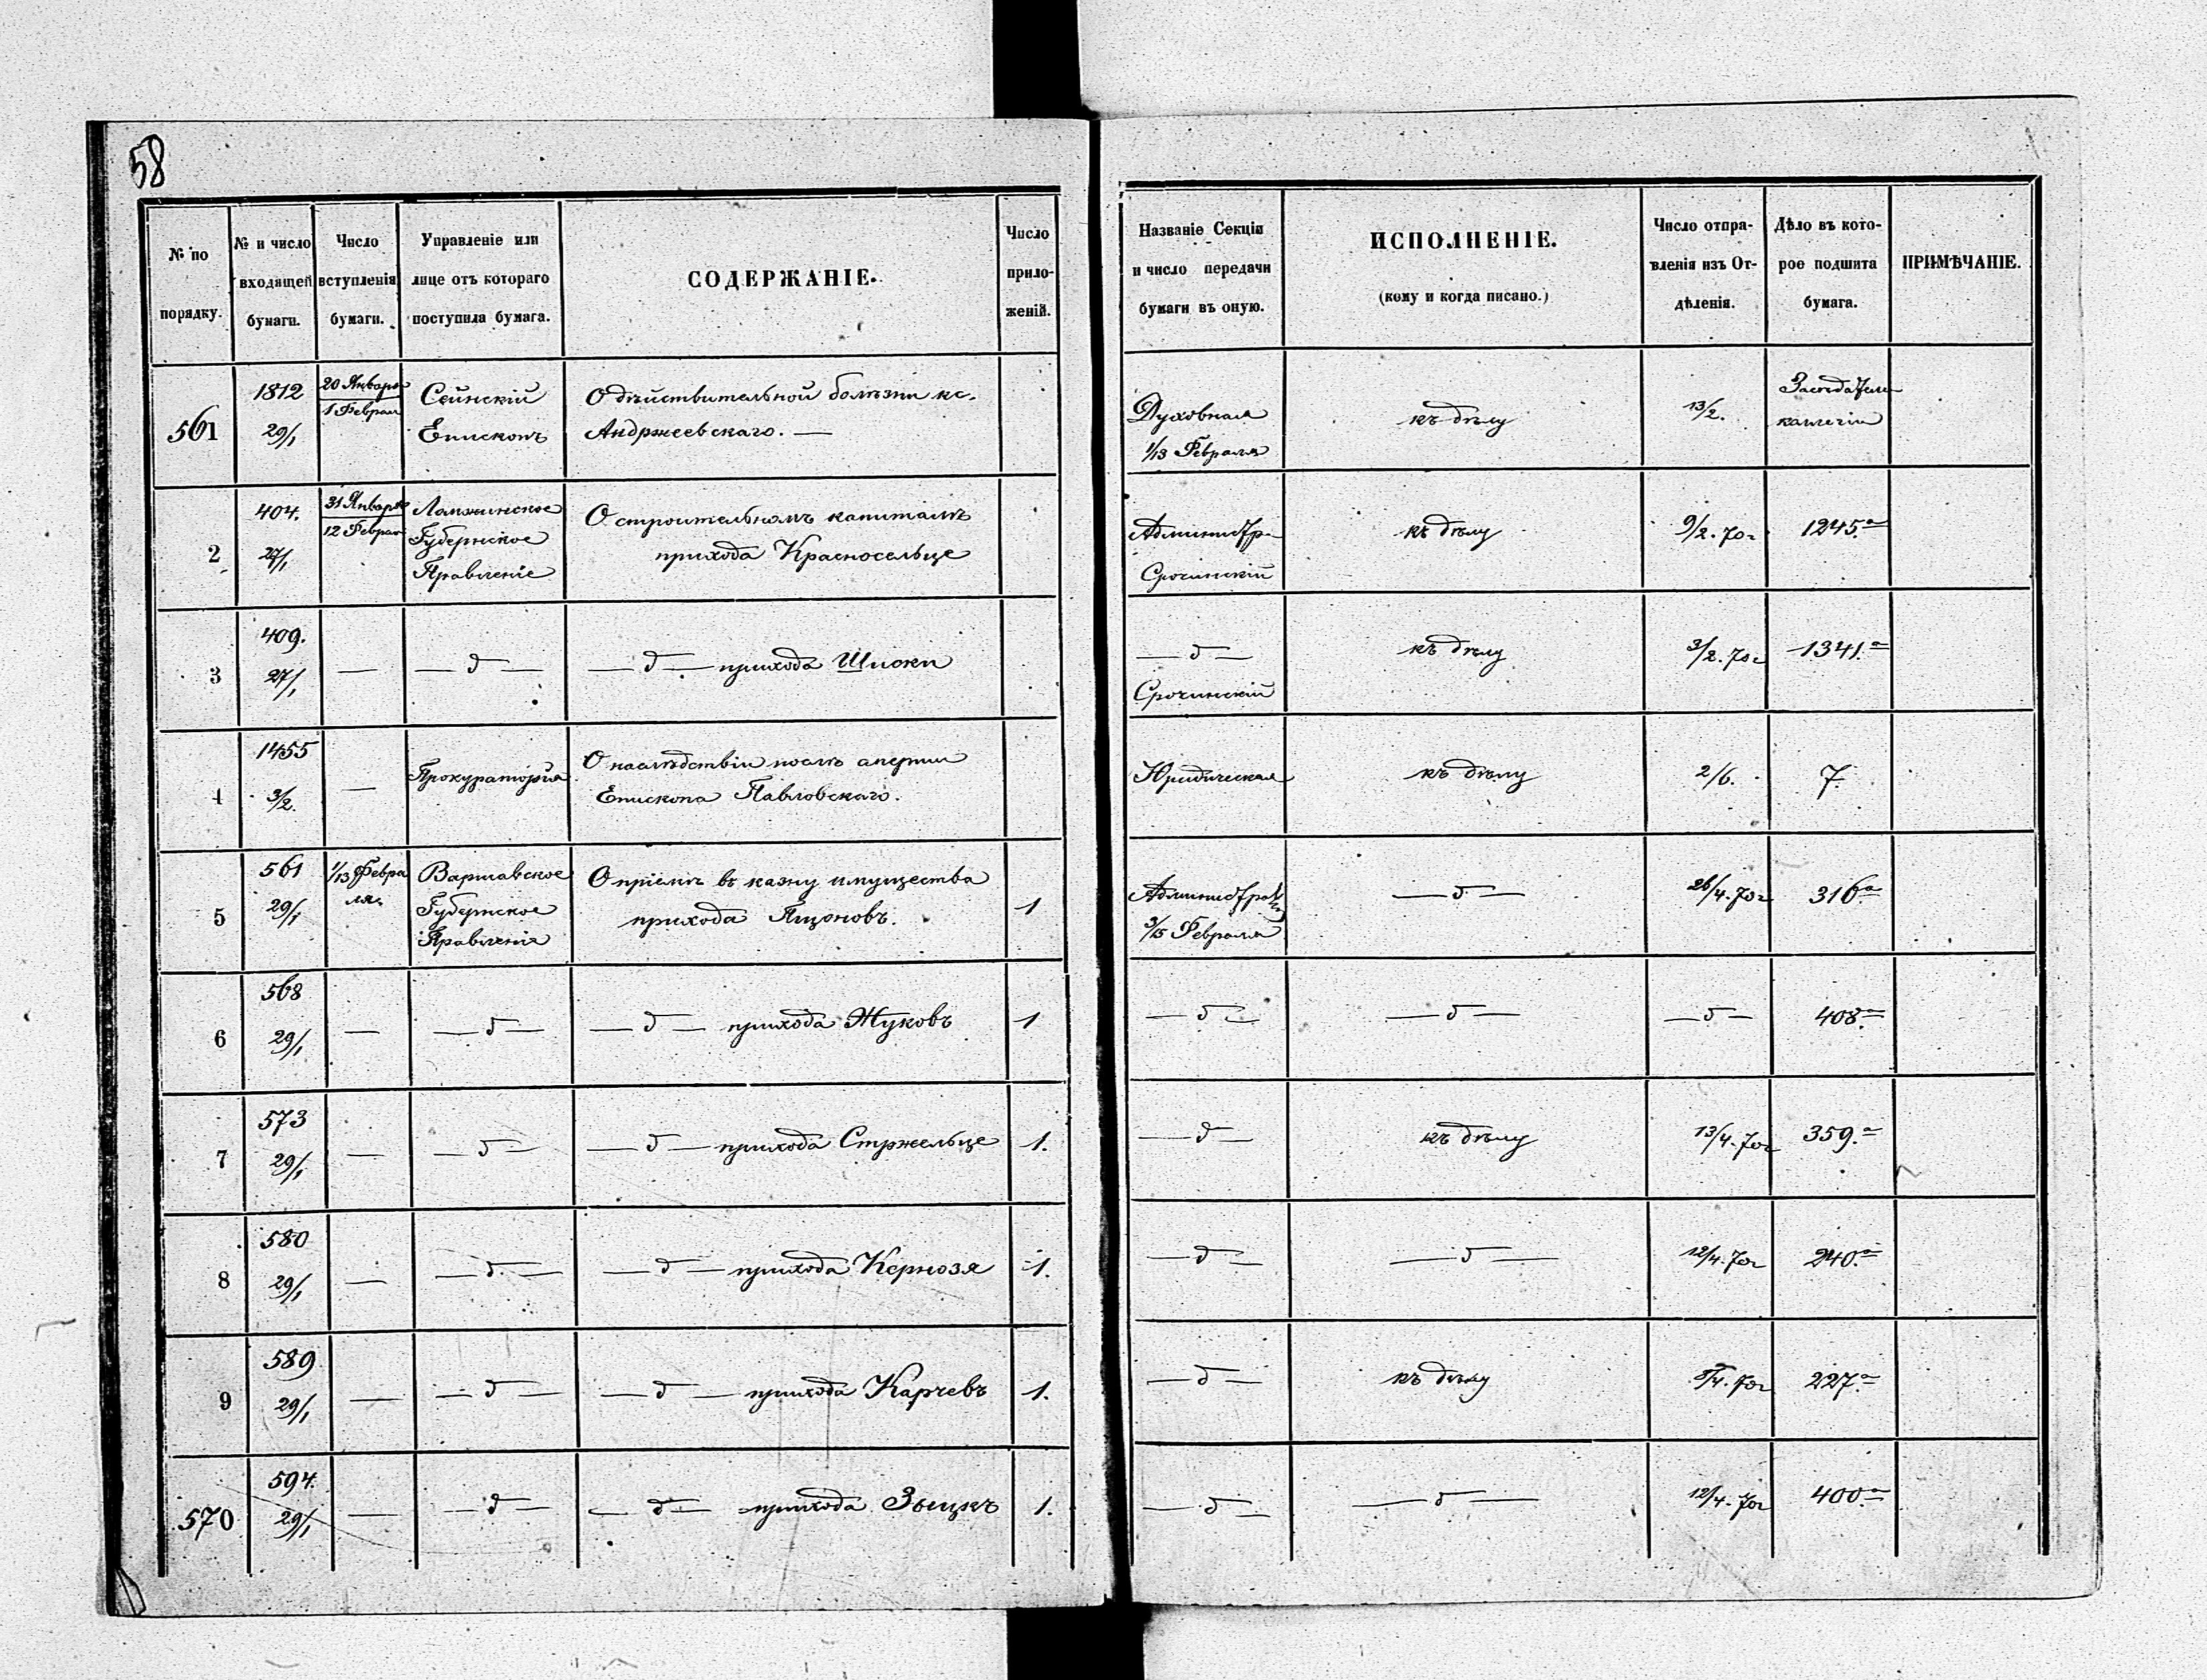 58
№ по порядку.
№ и число входящей бумаги.
Число вступленія бумаги.
Управленіе или лице отъ котораго поступила бумага.
СОДЕРЖАНІЕ.
Число приложеній.
Названіе Секціи и число передачи бумаги въ оную.
ИСПОЛНЕНІЕ.
(кому и когда писано.)
Число отправленія изъ Отдѣленія.
Дѣло въ которое подшита бумага.
ПРИМѢЧАНІЕ.
561
1812
29/1
20 Января
1 Феврал
Сейнскій
Епископъ
О дѣйствительной болѣзни кс.
Андржеевскаго. —
Духовная
1/13 Февраля
къ дѣлу
13/2.
2
404.
27/1
31 Января
12 Феврал
Ломжинское
Губернское
Правленіе
О строительномъ капиталѣ
прихода Красносельце
Администра
Срочинскій
къ дѣлу
9/2. 70г
1245.а
3
409.
27/1
—
— д —
— д — прихода Шиоки
— д —
Срочинскій
къ дѣлу
3/2. 70г
1341.а
4
1455
3/2.
—
Прокураторія
О наслѣдствіи послѣ
Епископа Павловскаго.
Юридическая
къ дѣлу
2/6.
7.
5
561
29/1
1/13 Февра
ля
Варшавское
Губернское
Правленіе
О пріемѣ въ казну имущества
прихода Пщоновъ.
1
3/15 Февраля
— д —
26/4. 70г
316а
6
568
29/1
—
— д —
— д — прихода Жуковъ
1
— д —
— д —
— д —
408.а
7
573
29/1
—
— д —
— д — прихода Стржельце
1.
— д —
къ дѣлу
13/4. 70г
359.а
8
580
29/1
—
— д —
— д — прихода Кернозя
1.
— д —
— д —
12/4. 70г
240.а
9
589
29/1
—
— д —
— д — прихода Карчевъ
1.
— д —
къ дѣлу
/4. 70г
227.а
570
594.
29/1
—
— д —
— д — прихода Зыцкъ
1.
— д —
— д —
12/4. 70г
400а